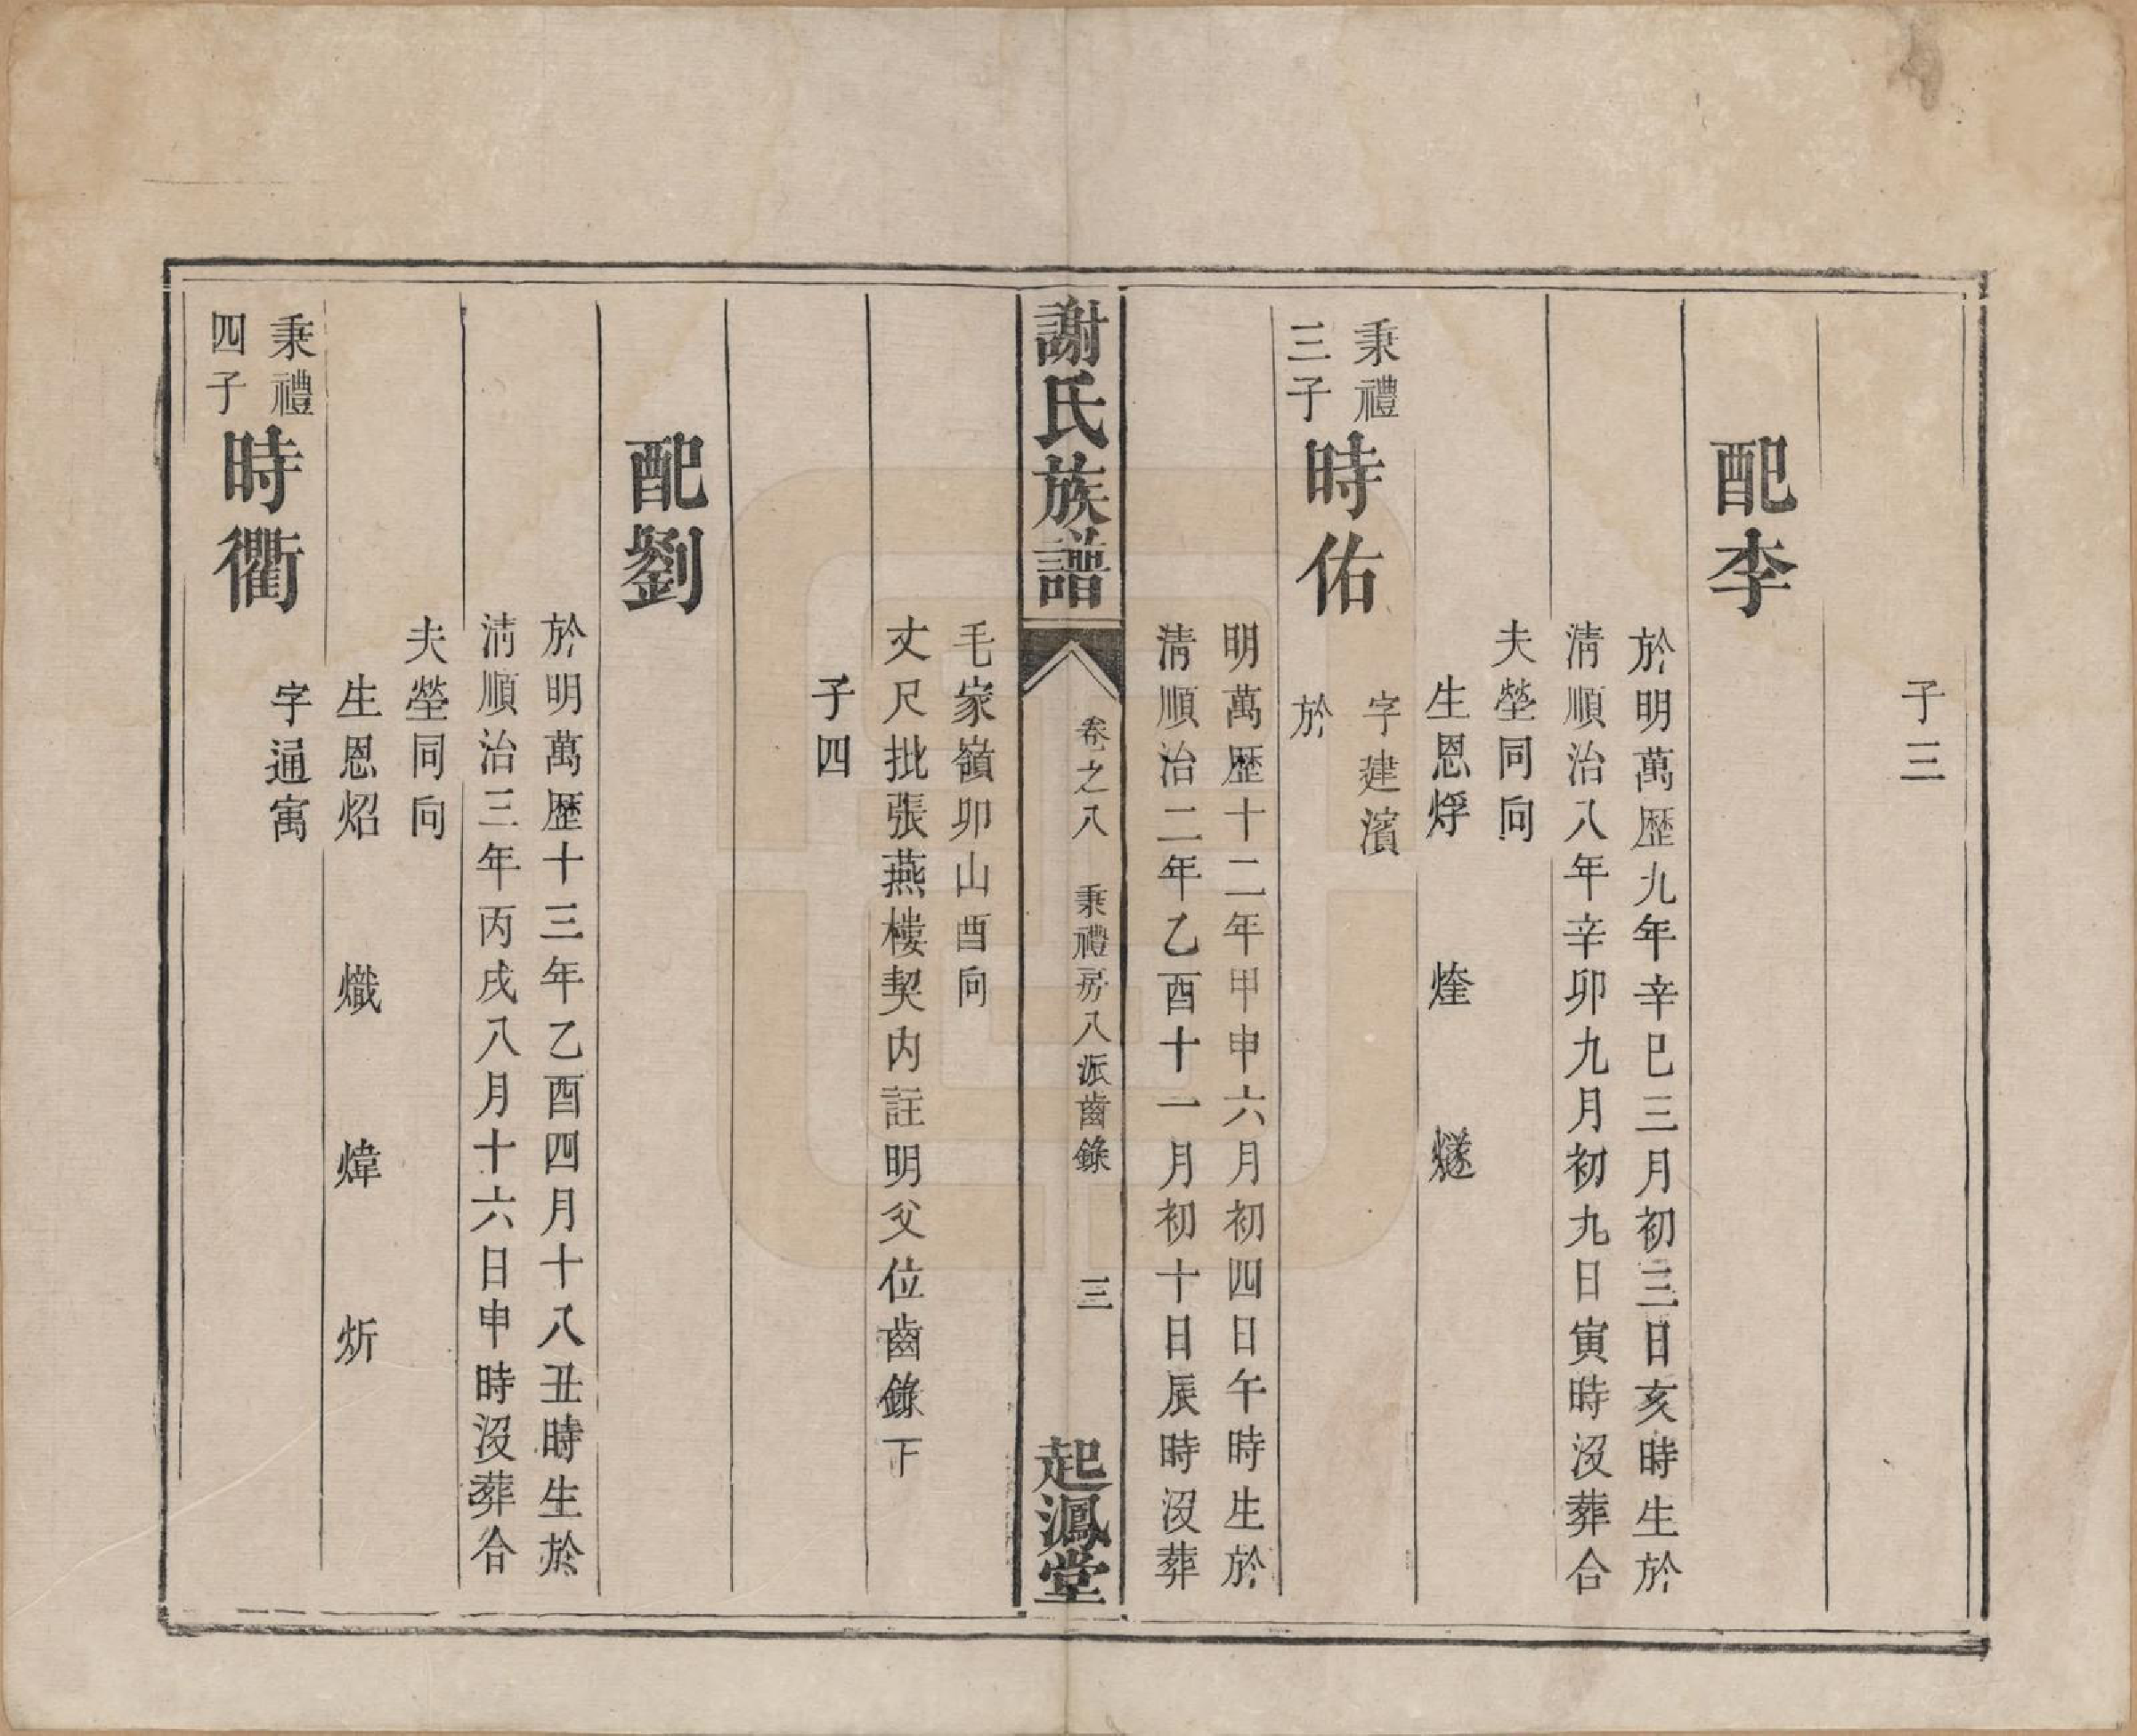 子三
配李
於明萬歷九年辛巳三月初三日亥時生於
淸順治八年辛卯九月初九日寅時沒葬合
夫塋同向
生恩烰 燑 燧
秉禮
三子
時佑
字建濱
於
明萬歷十二年甲申六月初四日午時生於
淸順治二年乙酉十一月初十日辰時沒葬
謝氏族譜
卷之八 秉禮房八派齒錄 三
起鳳堂
毛家嶺卯山酉向
丈尺批張燕樓契内註明父位齒錄下
子四
配劉
於明萬歷十三年乙酉四月十八丑時生於
淸順治三年丙戌八月十六日申時沒葬合
夫塋同向
生恩炤 熾 煒 炘
秉禮
四子
時衢
字通寓